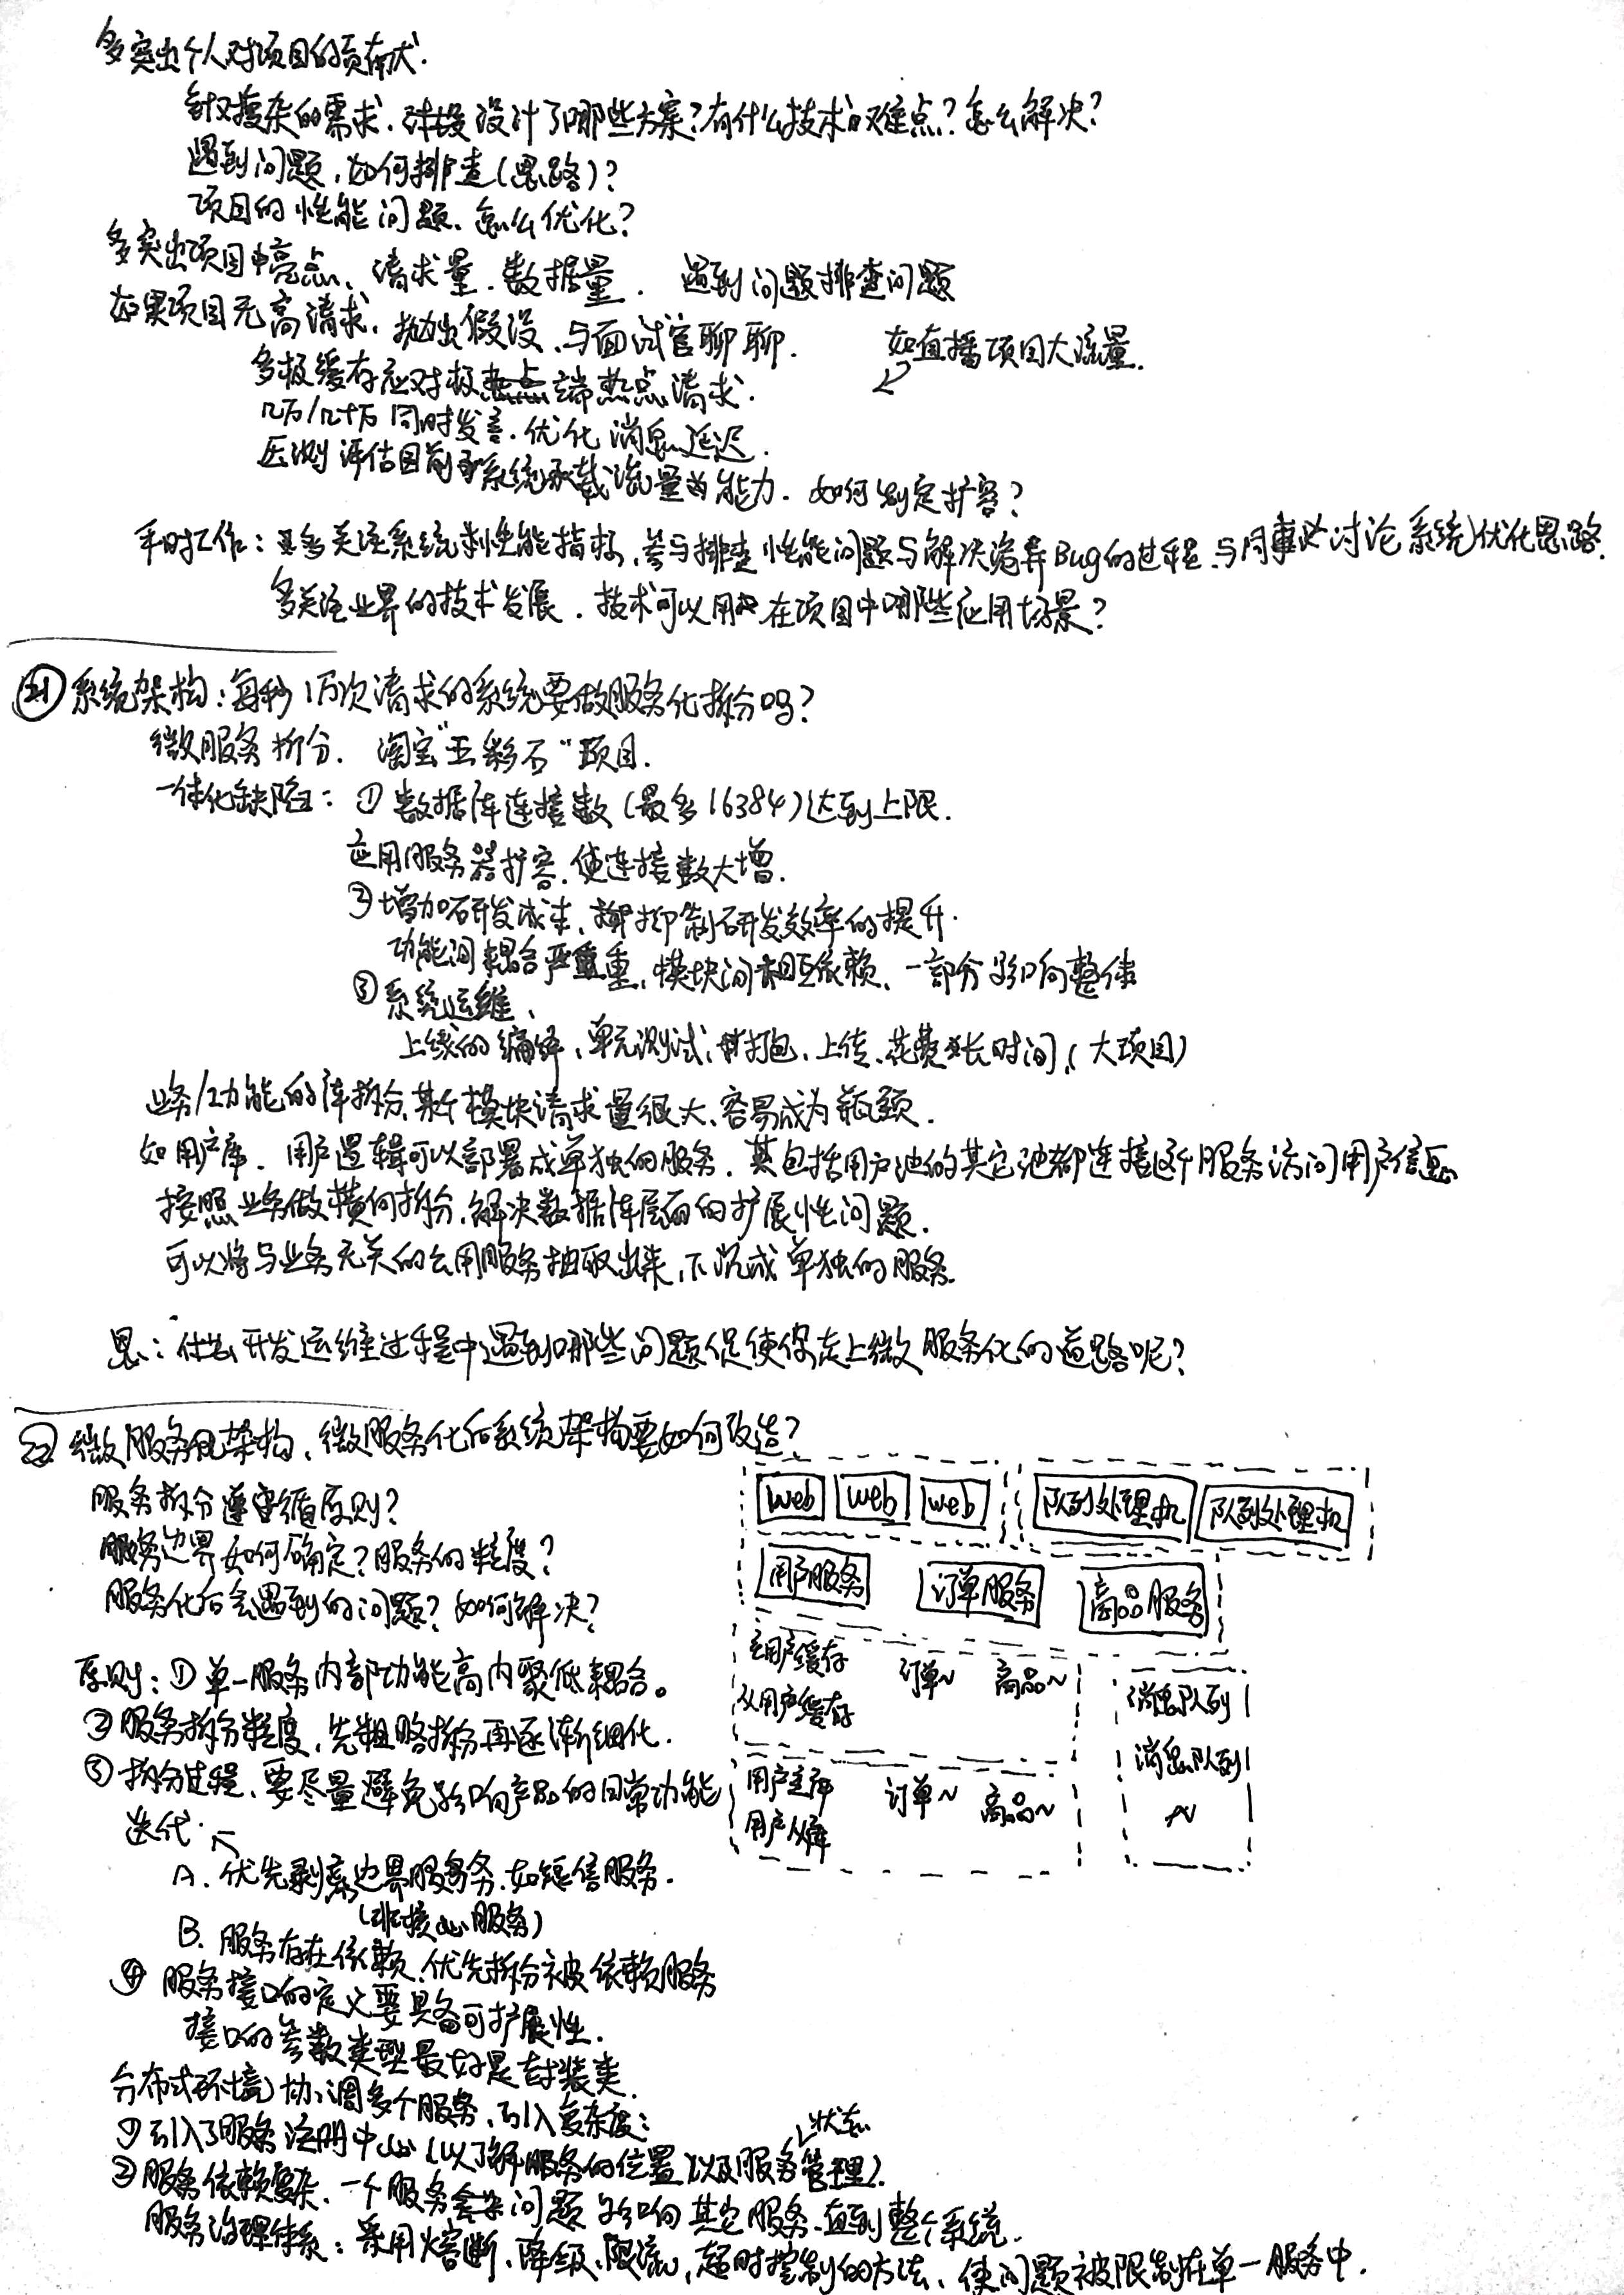 多突出个人对项目的贡献.
针对复杂的需求.设计了哪些方案?有什么技术难点?怎么解决?
遇到问题,如何排查(思路)?
项目的性能问题、怎么优化?
多突出项目中亮点、请求量.数据量. 遇到问题排查问题
如果项目无高请求.抛出假设、与面试官聊聊.
如直播项目大流量.
多级缓存应对极端热点请求.
几万/几十万同时发言.优化消息延迟.
压测评估目前系统承载流量的能力. 如何判定扩容?
平时工作:多关注系统性能指标、参与排查性能问题与解决诡异Bug的过程.与同事讨论系统优化思路.
多关注业界的技术发展.技术可以用在项目中哪些应用场景?
21 系统架构:每秒1万次请求的系统要做服务化拆分吗?
微服务拆分. 淘宝"五彩石"项目.
一体化缺陷: ①数据库连接数(最多16384)达到上限.
应用服务器扩容.使连接数大增.
②增加研发成本、抑制研发效率的提升.
功能间耦合严重、模块间相互依赖、一部分影响整体
③系统运维、
上线的编译、单元测试、打包、上传、花费长时间(大项目)
业务/功能的库拆分、某个模块请求量很大、容易成为瓶颈.
如用户库. 用户逻辑可以部署成单独的服务. 其包括用户池的其它池都连接这个服务访问用户信息
按照业务做横向拆分.解决数据库层面的扩展性问题.
可以将与业务无关的公用服务抽取出来、下沉成单独的服务.
思:什么开发运维过程中遇到哪些问题促使你走上微服务化的道路呢?
22 微服务架构、微服务化后系统架构要如何改造?
服务拆分遵循原则?
服务边界如何确定?服务的粒度?
服务化后会遇到的问题?如何解决?
web web web 队列处理机 队列处理机
用户服务 订单服务 商品服务
主用户缓存 订单~ 商品~
从用户缓存
消息队列
消息队列
~
用户主库 订单~ 商品~
用户从库
原则:①单一服务内部功能高内聚低耦合。
②服务拆分粒度、先粗略拆分再逐渐细化.
③拆分过程、要尽量避免影响产品的日常功能
迭代.
A. 优先剥离边界服务.如短信服务.
(非核心服务)
B. 服务存在依赖、优先拆分被依赖服务
④ 服务接口的定义要具备可扩展性.
接口的参数类型最好是封装类.
分布式环境协调多个服务、引入复杂度:
状态
①引入了服务注册中心(以了解服务的位置以及服务管理).
②服务依赖复杂、一个服务问题影响其它服务.直到整个系统.
服务治理体系:采用熔断、降级、限流、超时控制的方法、使问题被限制在单一服务中.